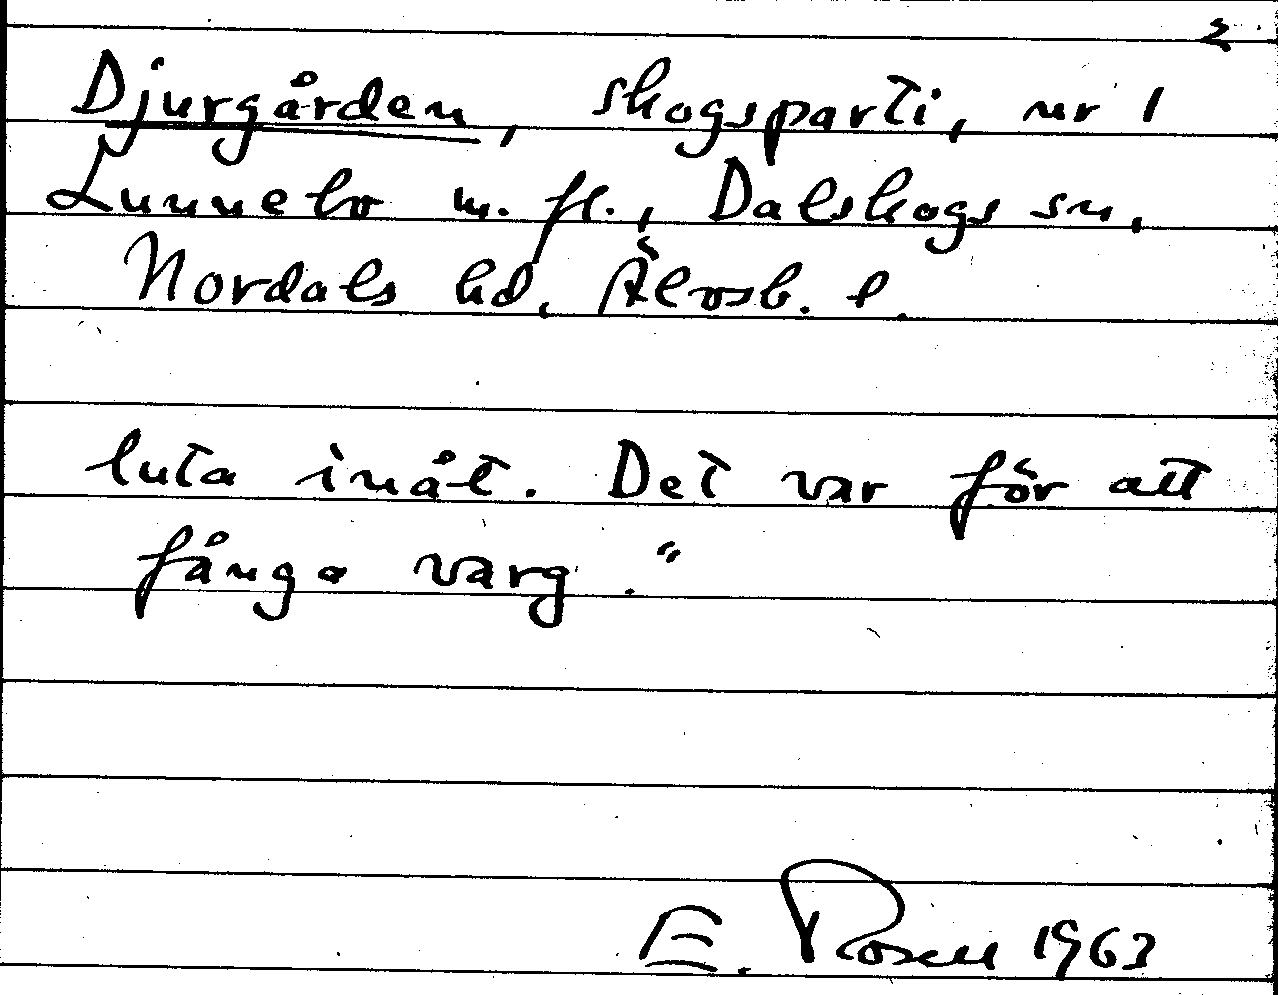 2
Djurgården, skogsparti, nr 1
Lunnebo m. fl., Dalskogs sn,
Nordals hd, Älvsb. l.
luta inåt. Det var för att
fånga varg."
E. Rosell 1963